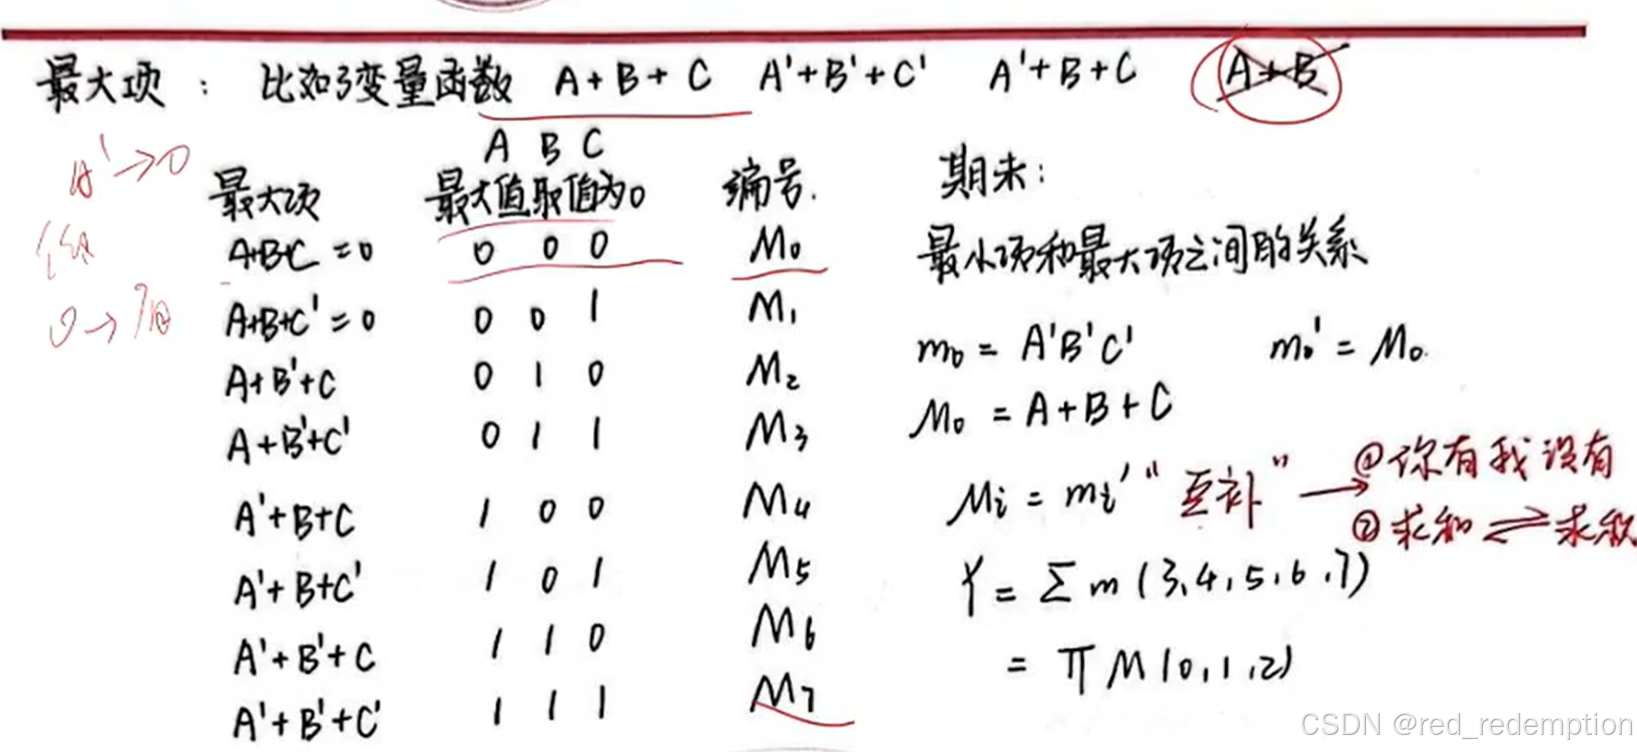 最大项： 比如3变量函数 A+B+C A'+B'+C' A'+B+C A+B
A'→0
A B C
最大项 最大值取值为0 编号.
A+B+C=0 0 0 0 M₀
A+B+C'=0 0 0 1 M₁
A+B'+C 0 1 0 M₂
A+B'+C' 0 1 1 M₃
A'+B+C 1 0 0 M₄
A'+B+C' 1 0 1 M₅
A'+B'+C 1 1 0 M₆
A'+B'+C' 1 1 1 M₇
期末：
最小项和最大项之间的关系
m₀ = A'B'C' m₀' = M₀.
M₀ = A+B+C
Mᵢ = mᵢ' "互补" → ①你有我没有
②求和 ⇌ 求积
Y = Σm(3,4,5,6,7)
= πM(0,1,2)
CSDN @red_redemption